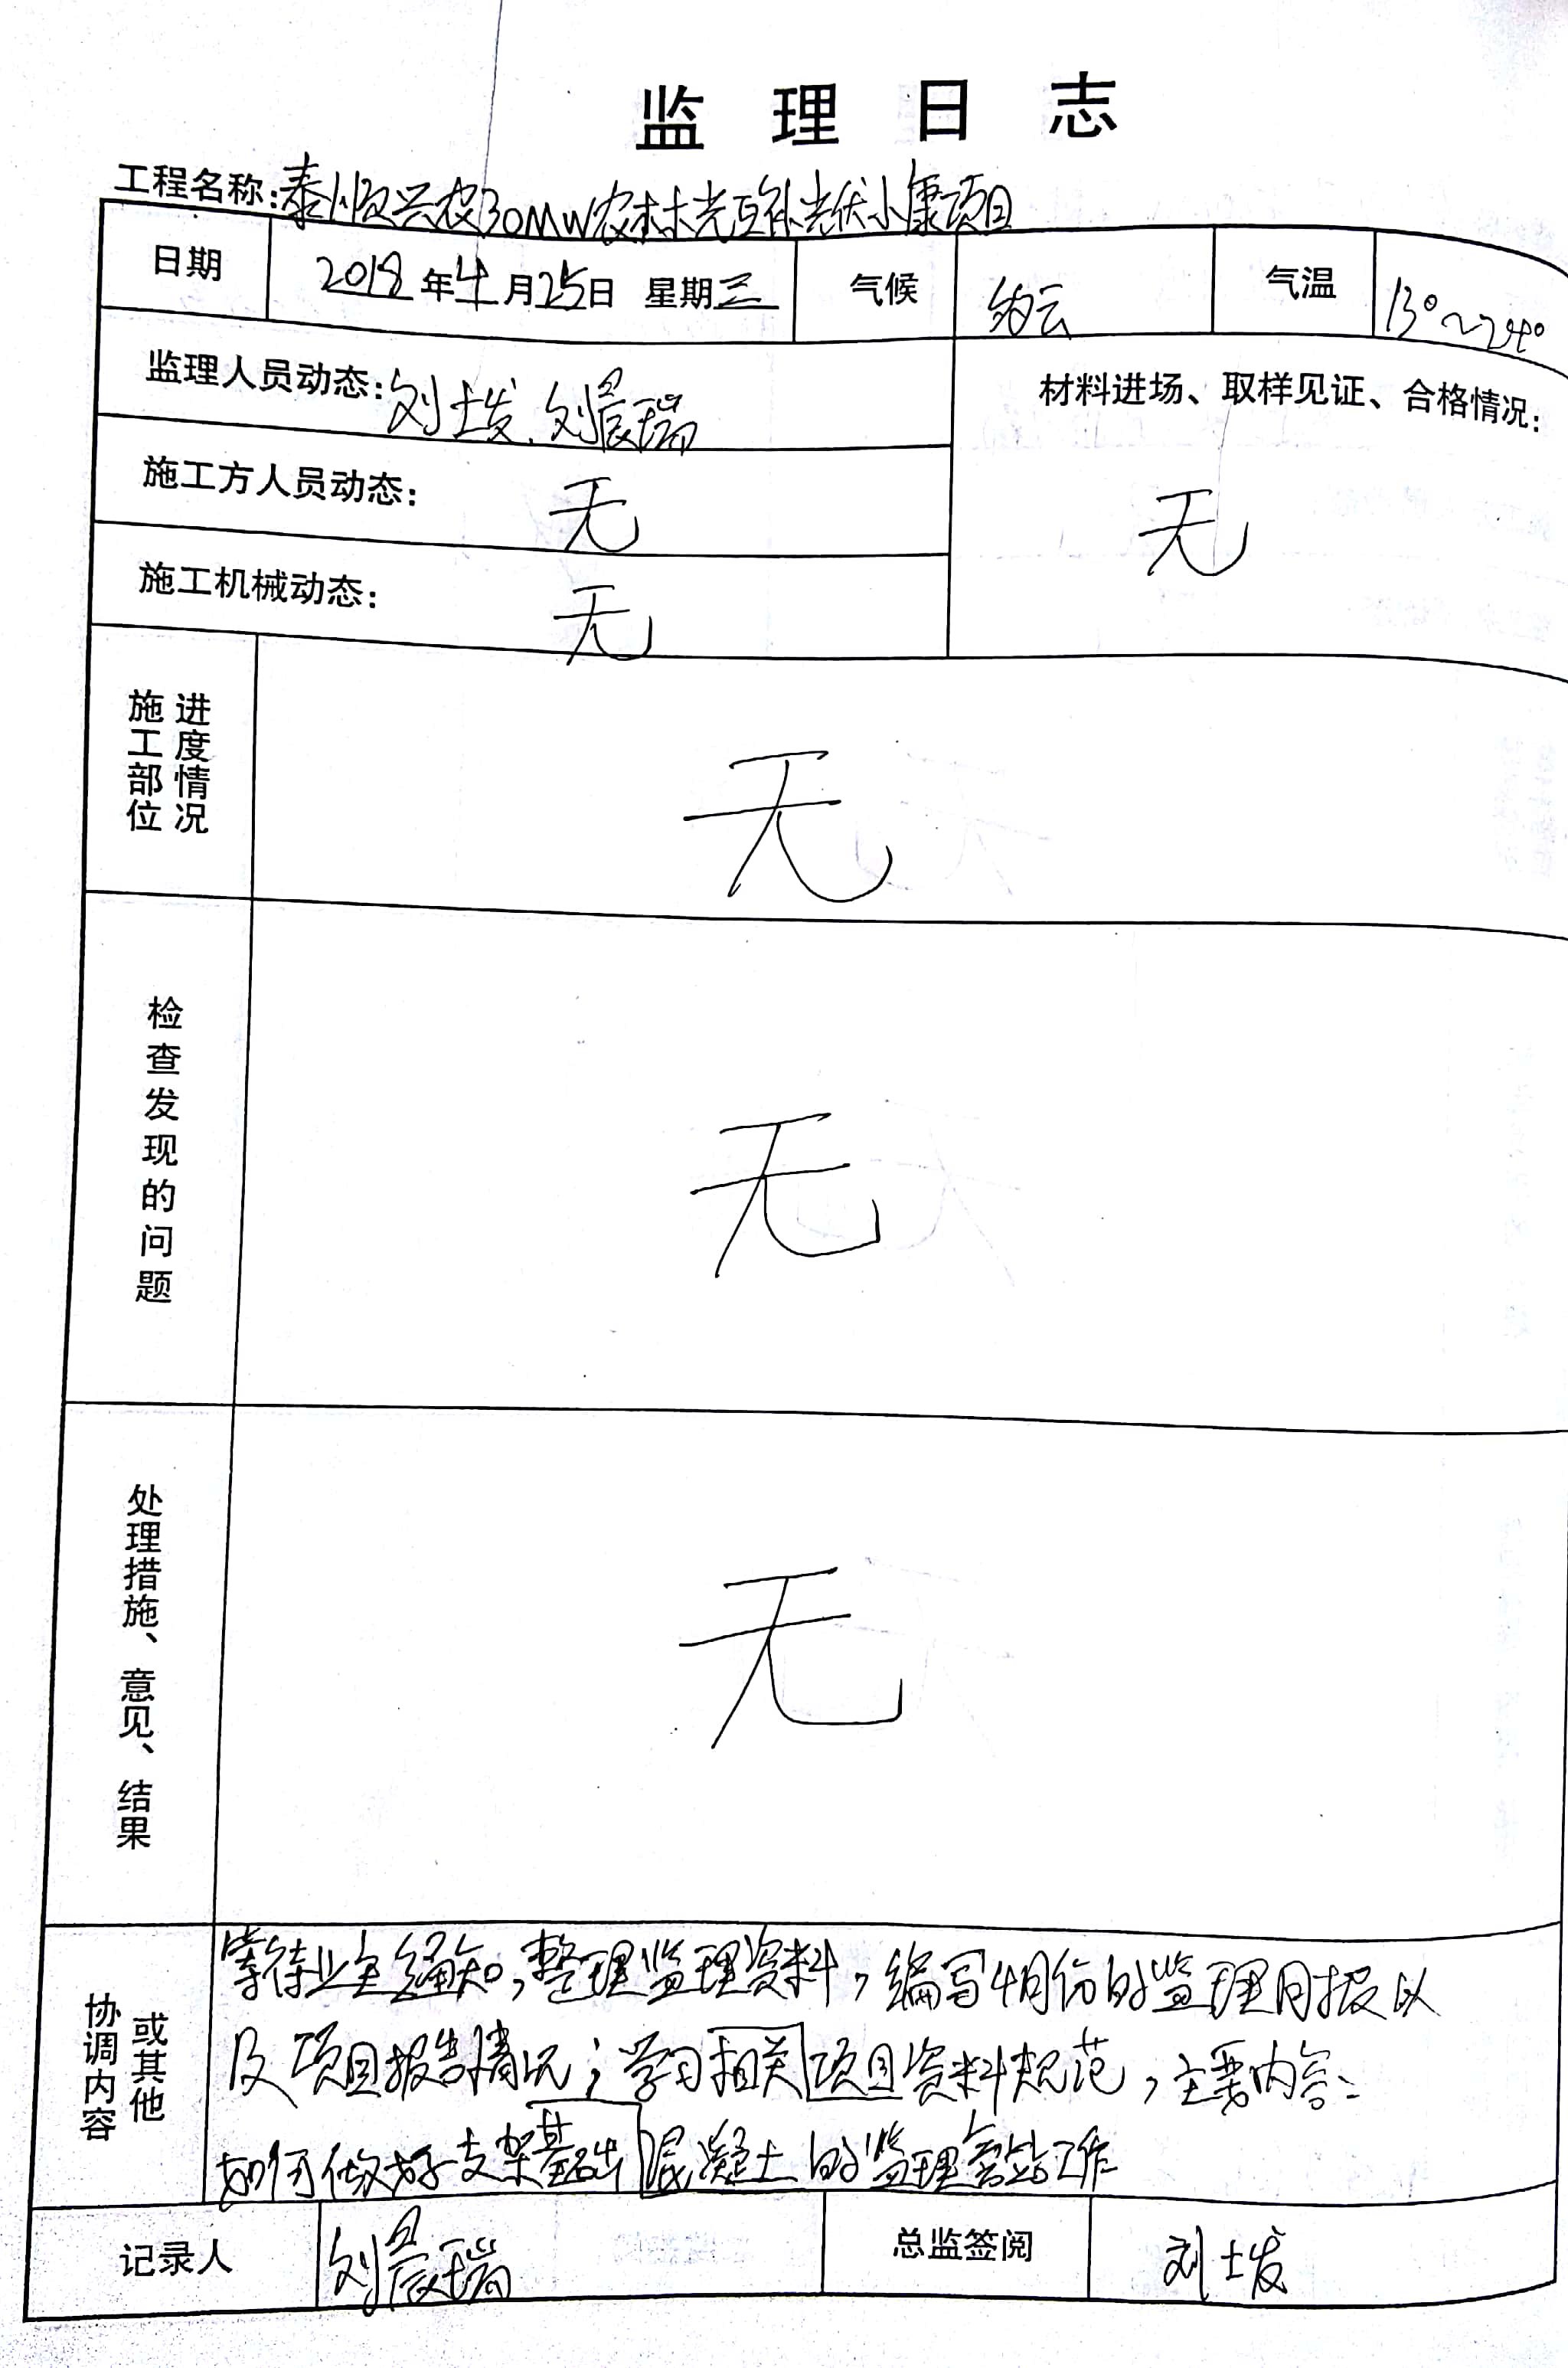 监理日志
工程名称:泰顺兴农30MW农林光互补光伏小康项目
日期 2018年4月25日 星期三 气候 多云 气温 13°~24°
监理人员动态:刘士发、刘晨瑞
材料进场、取样见证、合格情况:
无
施工方人员动态: 无
施工机械动态: 无
施工部位
进度情况
无
检查发现的问题
无
处理措施、意见、结果
无
协调内容
或其他
等待业主通知,整理监理资料,编写4月份的监理月报以
及项目报告情况;学习相关项目资料规范,主要内容:
如何做好支架基础混凝土的监理旁站工作
记录人 刘晨瑞 总监签阅 刘士发